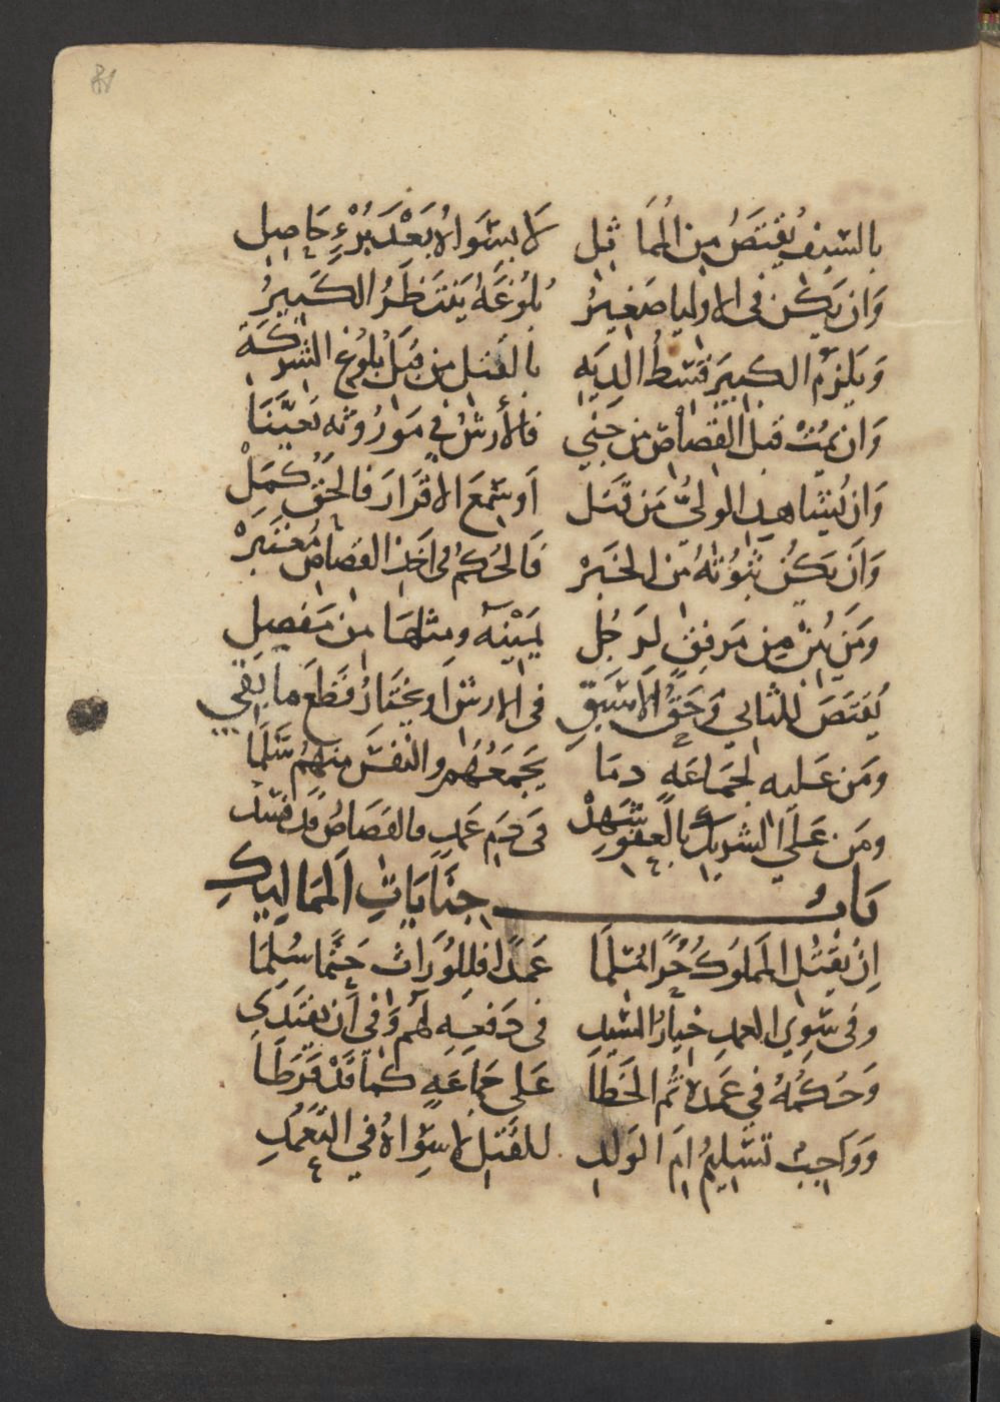 بالسَّيف يُقتَصُّ من المُمَاثِل لا بسِوَاهُ بَعْدَ بُرْءٍ حَاصِل
وَان يَكن في الاوليا صَغيرُ بُلُوغَهُ يَنتَظِرُ الكَبيرُ
وَيلزمُ الكبيرَ قسْطُ الديَه بالقتل من قبَل بُلُوغ الشركَة
وَان يَمُتْ قبل القصَاص من جَنَى فالأرشُ في مَورُوثه تعَيَّنَا
وَان يُشَاهد الوليُّ مَن قَتَل اَو سَمعَ الاقرَارَ فالحَقُّ كمَلْ
وَان يَكُن ثبُوتهُ من الخَبَرْ فَالحُكمُ في اَخذ القصَاص مُعتَبَرْ
ومَن يُبن من مَرفِقٍ لرَجُل يَمينَه ومثلهَا من مَفصِل
يُقتَصَّ للثاني وَحَقُّ الاَسبَقِ في الارش اَو يختَارُ قطعَ ما بَقي
ومَن عَليه لجمَاعَهٍ دمَا يَجمَعُهُم والنفسَ منهُم سَلَّمَا
ومَن عَلَى الشريك بالعَفو شَهِدْ في دَم عَمدٍ فالقصَاصُ قَد فسَد
بَابُ جنَايَاتِ المَمَاليكِ
اِنْ يقتُل المَملوكُ حُرًّا مُسلمَا عَمدًا فللوُرَّاث حَتمًا سُلمَا
وفي سِوى العمدِ خيارُ السَّيدِ في دَفعِه لهُم وَفي أن يَفتَدي
وَحُكمُهُ في عَمده ثم الخَطَا عَلى جمَاعَهٍ كما قَدْ فَرَطَا
وَوَاجبٌ تسليمُ امّ الوَلدِ للقَتل لا سِوَاهُ في التَّعَمُّدِ